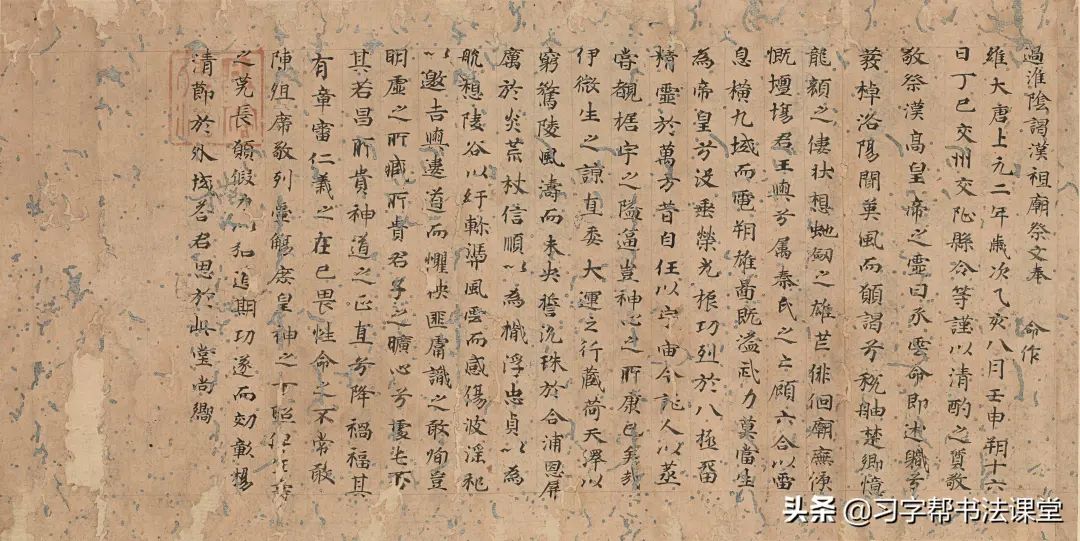 過淮陰謁漢祖廟祭文奉 命作
維大唐上元二年歲次乙亥八月壬申朔十六
日丁巳交州交阯縣令等謹以清酌之奠敬
敬祭漢高皇帝之靈曰承雲命即述職兮
棹洛陽聞英風而願謁兮稅舳楚鄉憶
龍顏之傀狀想虵劒之雄芒徘徊廟廡俯
慨壇場君王興兮屬秦氏之亡顧六合以雷
息橫九域而電朔雄啚既溢武力莫當生
為帝皇兮沒垂榮光振功烈於八極留
精靈於萬方昔自任以宇宙今託人以蒸
嘗覩棲宇之隘逼豈神心之所康已矣哉
伊微生之諒直委大運之行藏荷天澤以
窮驚陵風濤而未央誓沉珠於合浦思屏
厲於炎荒杖信順以為檝浮忠貞以為
航想陵谷以紆軫漭風雲而感傷波淫祀
以邀吉輿遺道而懼殃匪庸識之敢殉豈
明虛之所臧所貴君子之曠心兮
其若昌所貴神道之正直兮降禍福其
有章審仁義之在已畏性命之不常敢
陳俎席敬列壺觴庶皇神之下照
之莞長願假力以 追期功遂而効彰揚
清節於外域答君恩於此堂尚饗
头条 @习字帮书法课堂